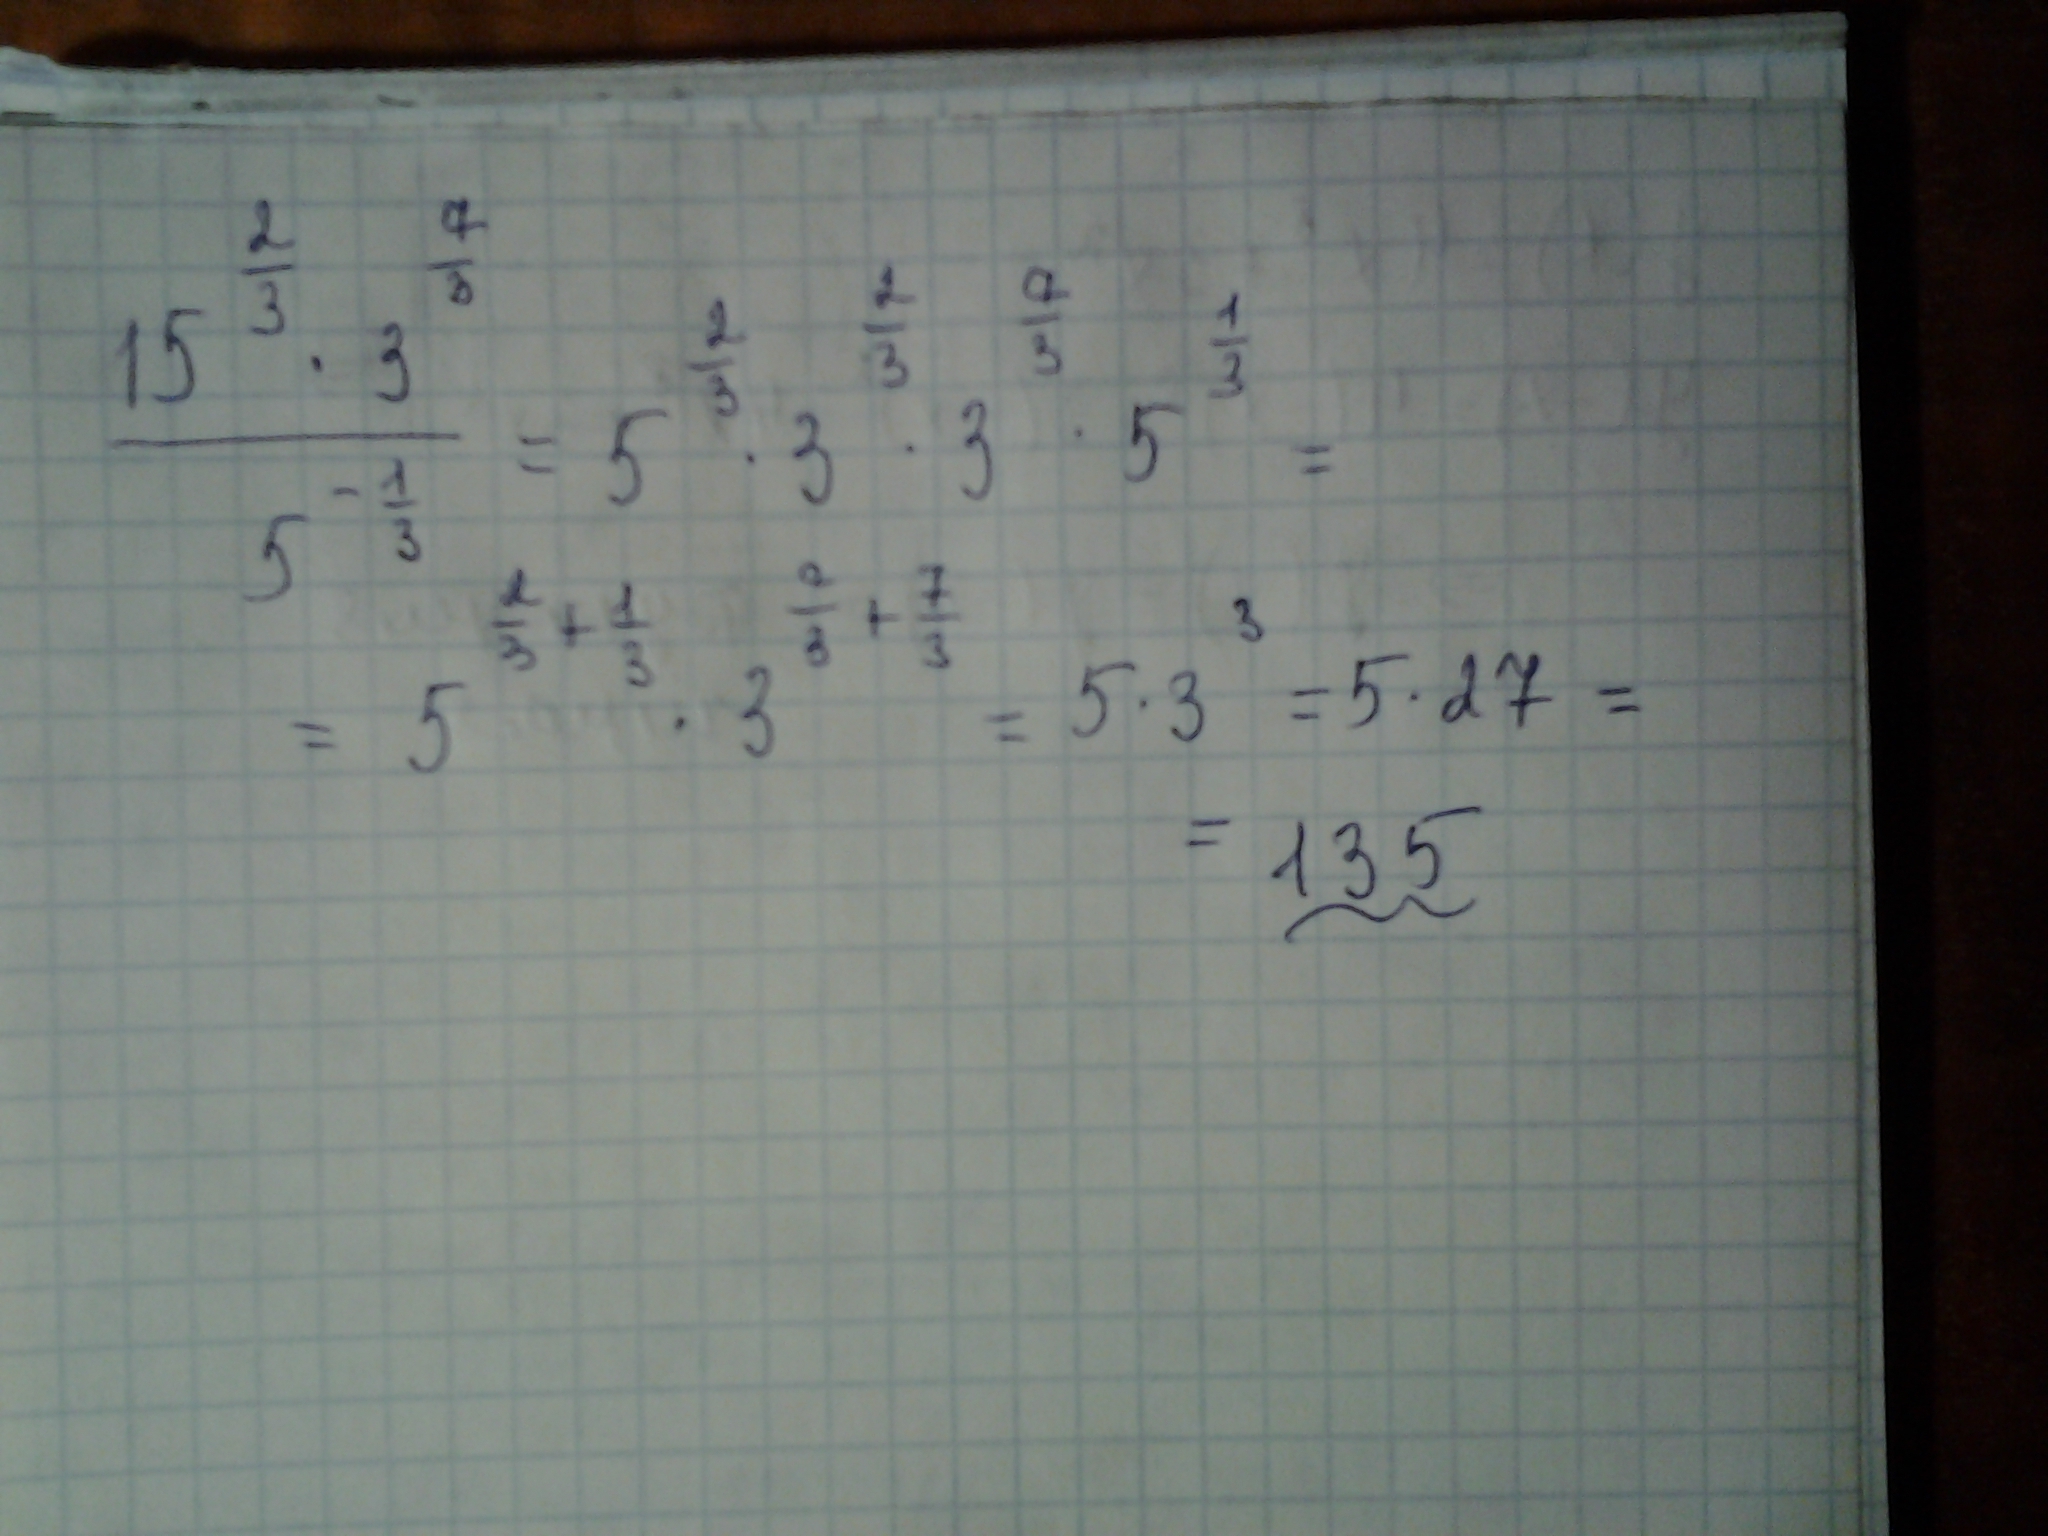 15^{2/3} · 3^{7/3} / 5^{-1/3} = 5^{2/3} · 3^{2/3} · 3^{7/3} · 5^{1/3} =
= 5^{2/3 + 1/3} · 3^{2/3 + 7/3} = 5 · 3^3 = 5 · 27 =
= 135